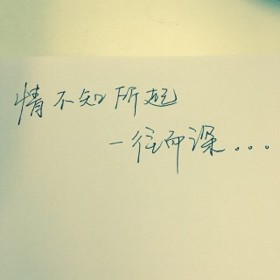 情不知所起
一往而深...